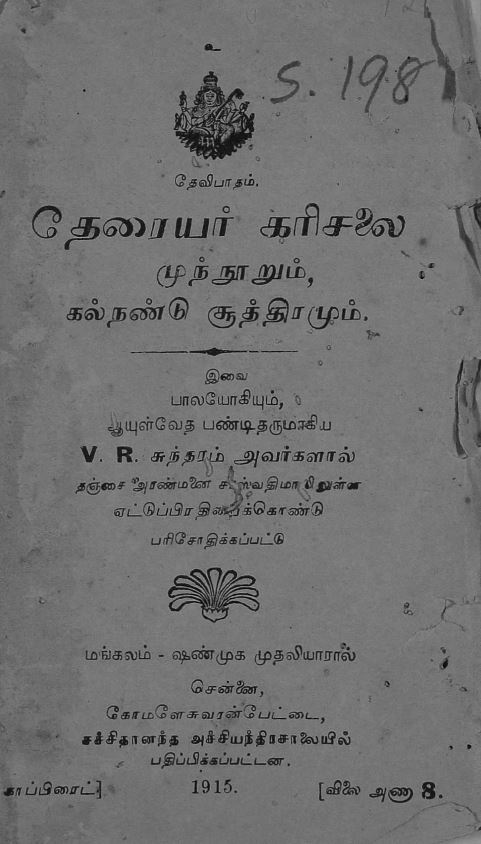 உ
S. 198
தேவிபாதம்.
தேரையர் கரிசலை
முந்நூறும்,
கல்நண்டு சூத்திரமும்.
இவை
பாலயோகியும்,
ஆயுள்வேத பண்டிதருமாகிய
V. R. சுந்தரம் அவர்களால்
தஞ்சை அரண்மனை சரஸ்வதிமாலிலுள்ள
ஏட்டுப்பிரதிரைக்கொண்டு
பரிசோதிக்கப்பட்டு
மங்கலம் - ஷண்முக முதலியாரால்
சென்னை,
கோமளேசுவரன்பேட்டை,
சச்சிதானந்த அச்சியந்திரசாலையில்
பதிப்பிக்கப்பட்டன.
காப்பிரைட்] 1915. [விலை அணா 8.